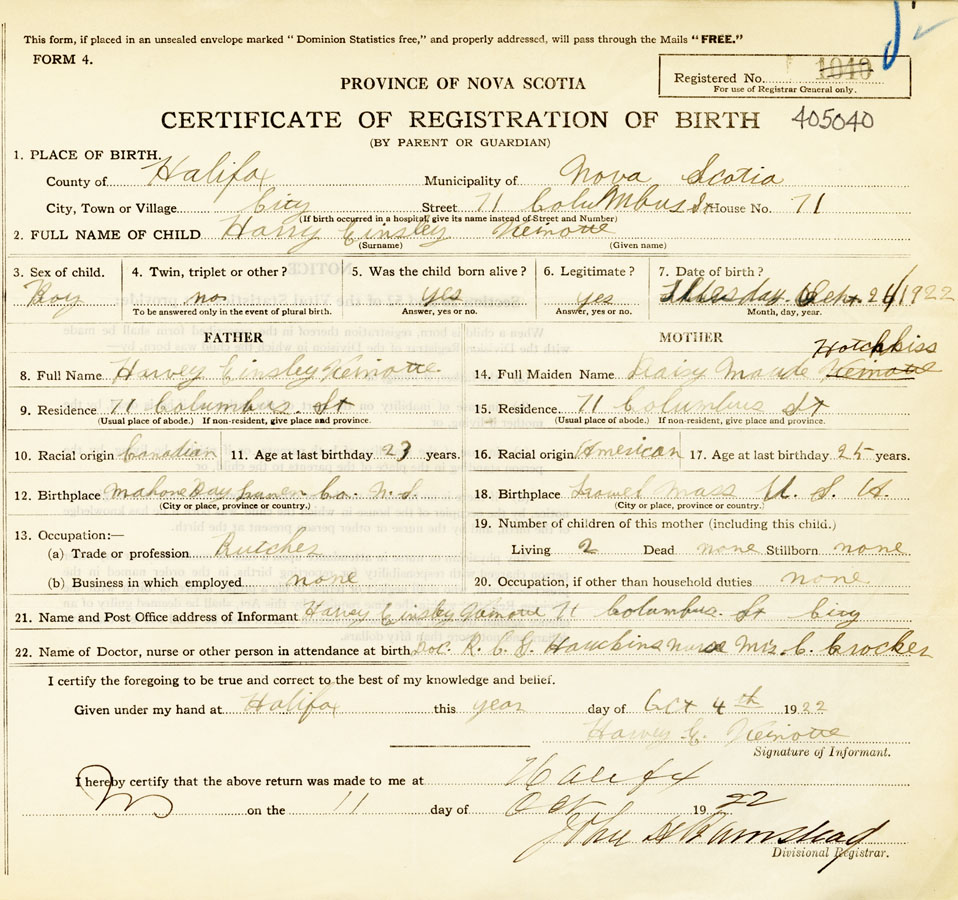 This form, if placed in an unsealed envelope marked "Dominion Statistics free," and properly addressed, will pass through the Mails "FREE."
FORM 4.
Registered No. 1040
For use of Registrar General only.
PROVINCE OF NOVA SCOTIA
CERTIFICATE OF REGISTRATION OF BIRTH 405040
(BY PARENT OR GUARDIAN)
1. PLACE OF BIRTH.
County of Halifax Municipality of Nova Scotia
City, Town or Village City Street 71 Columbus St House No. 71
(If birth occurred in a hospital, give its name instead of Street and Number)
2. FULL NAME OF CHILD Harry Einsley
(Surname) (Given name)
3. Sex of child. 4. Twin, triplet or other? 5. Was the child born alive? 6. Legitimate? 7. Date of birth?
Boy no yes yes Tuesday Sept. 26/1922
To be answered only in the event of plural birth. Answer, yes or no. Answer, yes or no. Month, day, year.
FATHER MOTHER
Hotchkiss
8. Full Name Harvey Einsley 14. Full Maiden Name Daisy Maude
9. Residence 71 Columbus. St 15. Residence. 71 Columbus St
(Usual place of abode.) If non-resident, give place and province. (Usual place of abode.) If non-resident, give place and province.
10. Racial origin Canadian 11. Age at last birthday 23 years. 16. Racial origin American 17. Age at last birthday 25 years.
12. Birthplace Mahone Bay Co. N.S. 18. Birthplace Lowel Mass U. S. A.
(City or place, province or country.) (City or place, province or country.)
13. Occupation:—
19. Number of children of this mother (including this child.)
(a) Trade or profession Butcher Living 2 Dead none Stillborn none
(b) Business in which employed none 20. Occupation, if other than household duties none
21. Name and Post Office address of Informant Harvey Einsley 71 Columbus. St City
22. Name of Doctor, nurse or other person in attendance at birth Doc. Hawkins nurse Mrs. C. Crocker
I certify the foregoing to be true and correct to the best of my knowledge and belief.
Given under my hand at Halifax this year day of Oct 4th 1922
Harvey E.
Signature of Informant.
I hereby certify that the above return was made to me at Halifax
on the 11 day of Oct 19 22
John
Divisional Registrar.